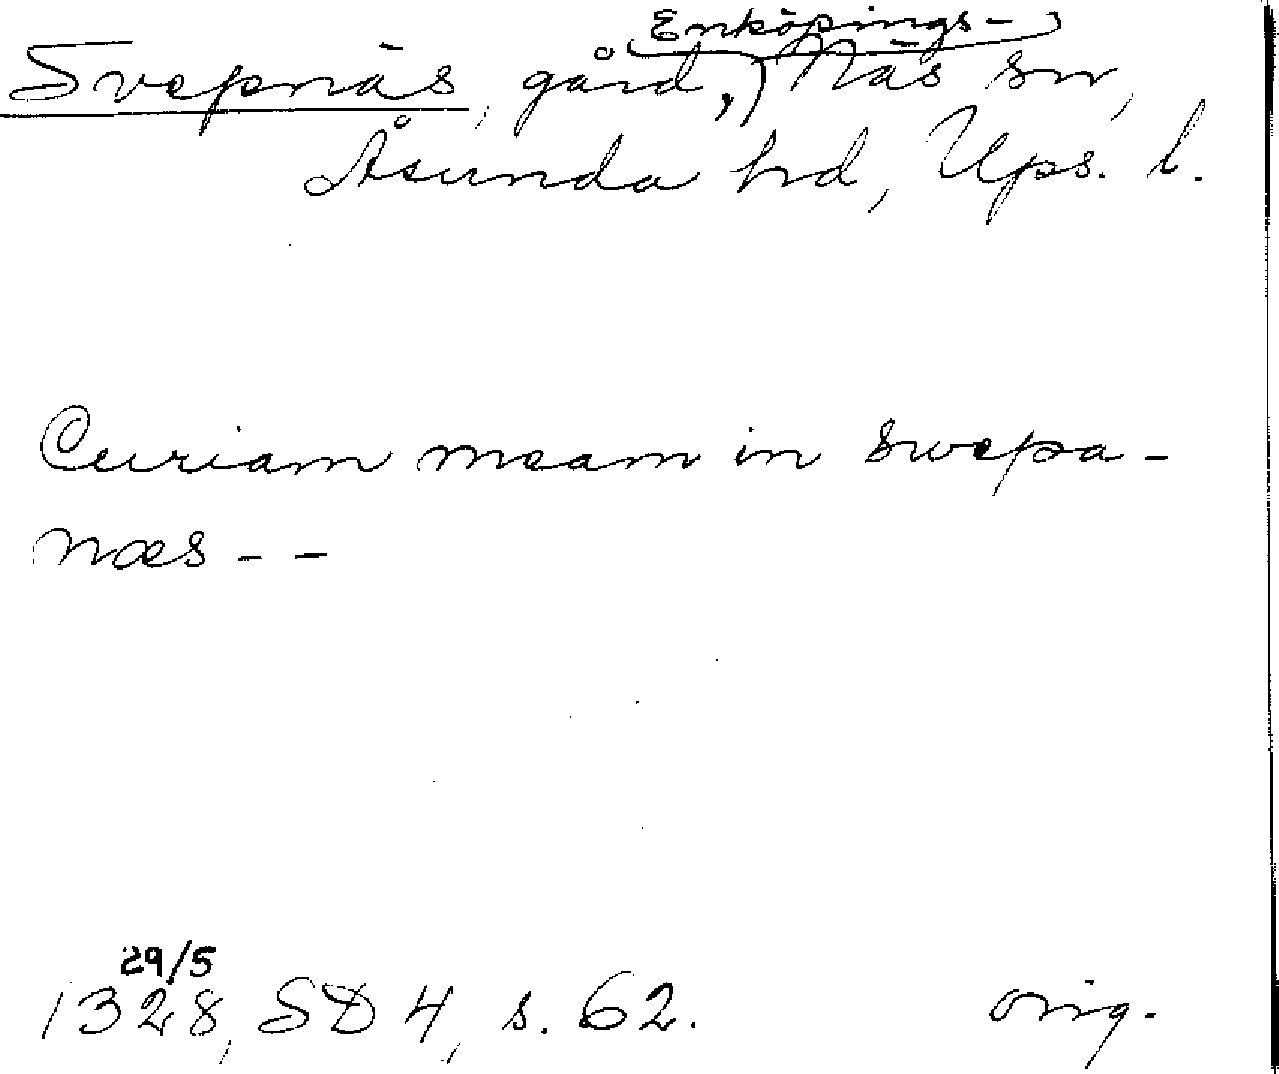 Enköpings-
Svepnäs, gård, Näs sn,
Åsunda hd, Ups. l.
Curiam meam in swepa-
næs - -
29/5
1328, SD 4, s. 62. orig.